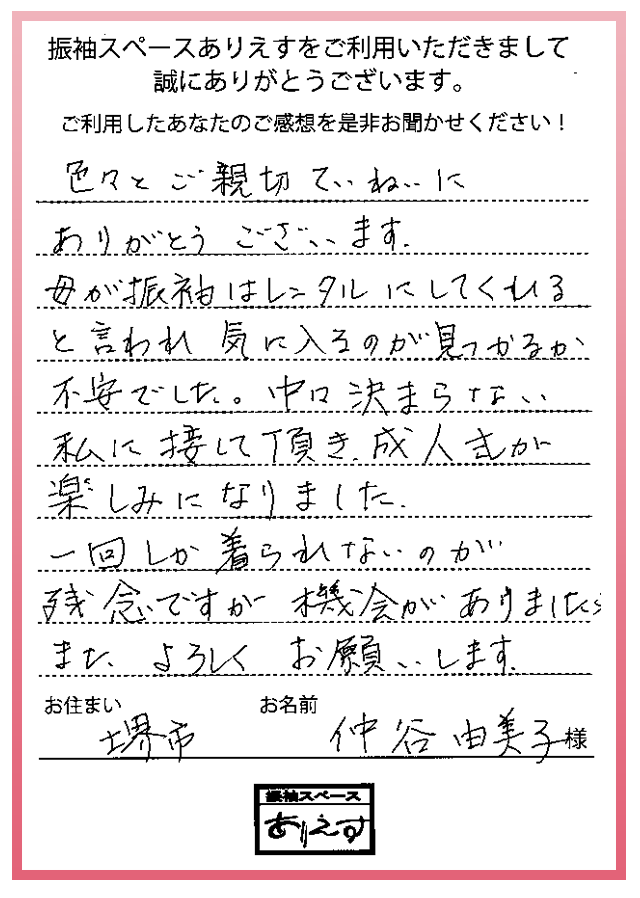 振袖スペースありえすをご利用いただきまして
誠にありがとうございます。
ご利用したあなたのご感想を是非お聞かせください！
色々とご親切ていねいに
ありがとうございます。
母が振袖はレンタルにしてくれる
と言われ気に入るのが見つかるか
不安でした。中々決まらない
私に接して頂き、成人式が
楽しみになりました。
一回しか着られないのが
残念ですが機会がありましたら
また、よろしくお願いします。
お住まい お名前
堺市 仲谷由美子様
振袖スペース
ありえす